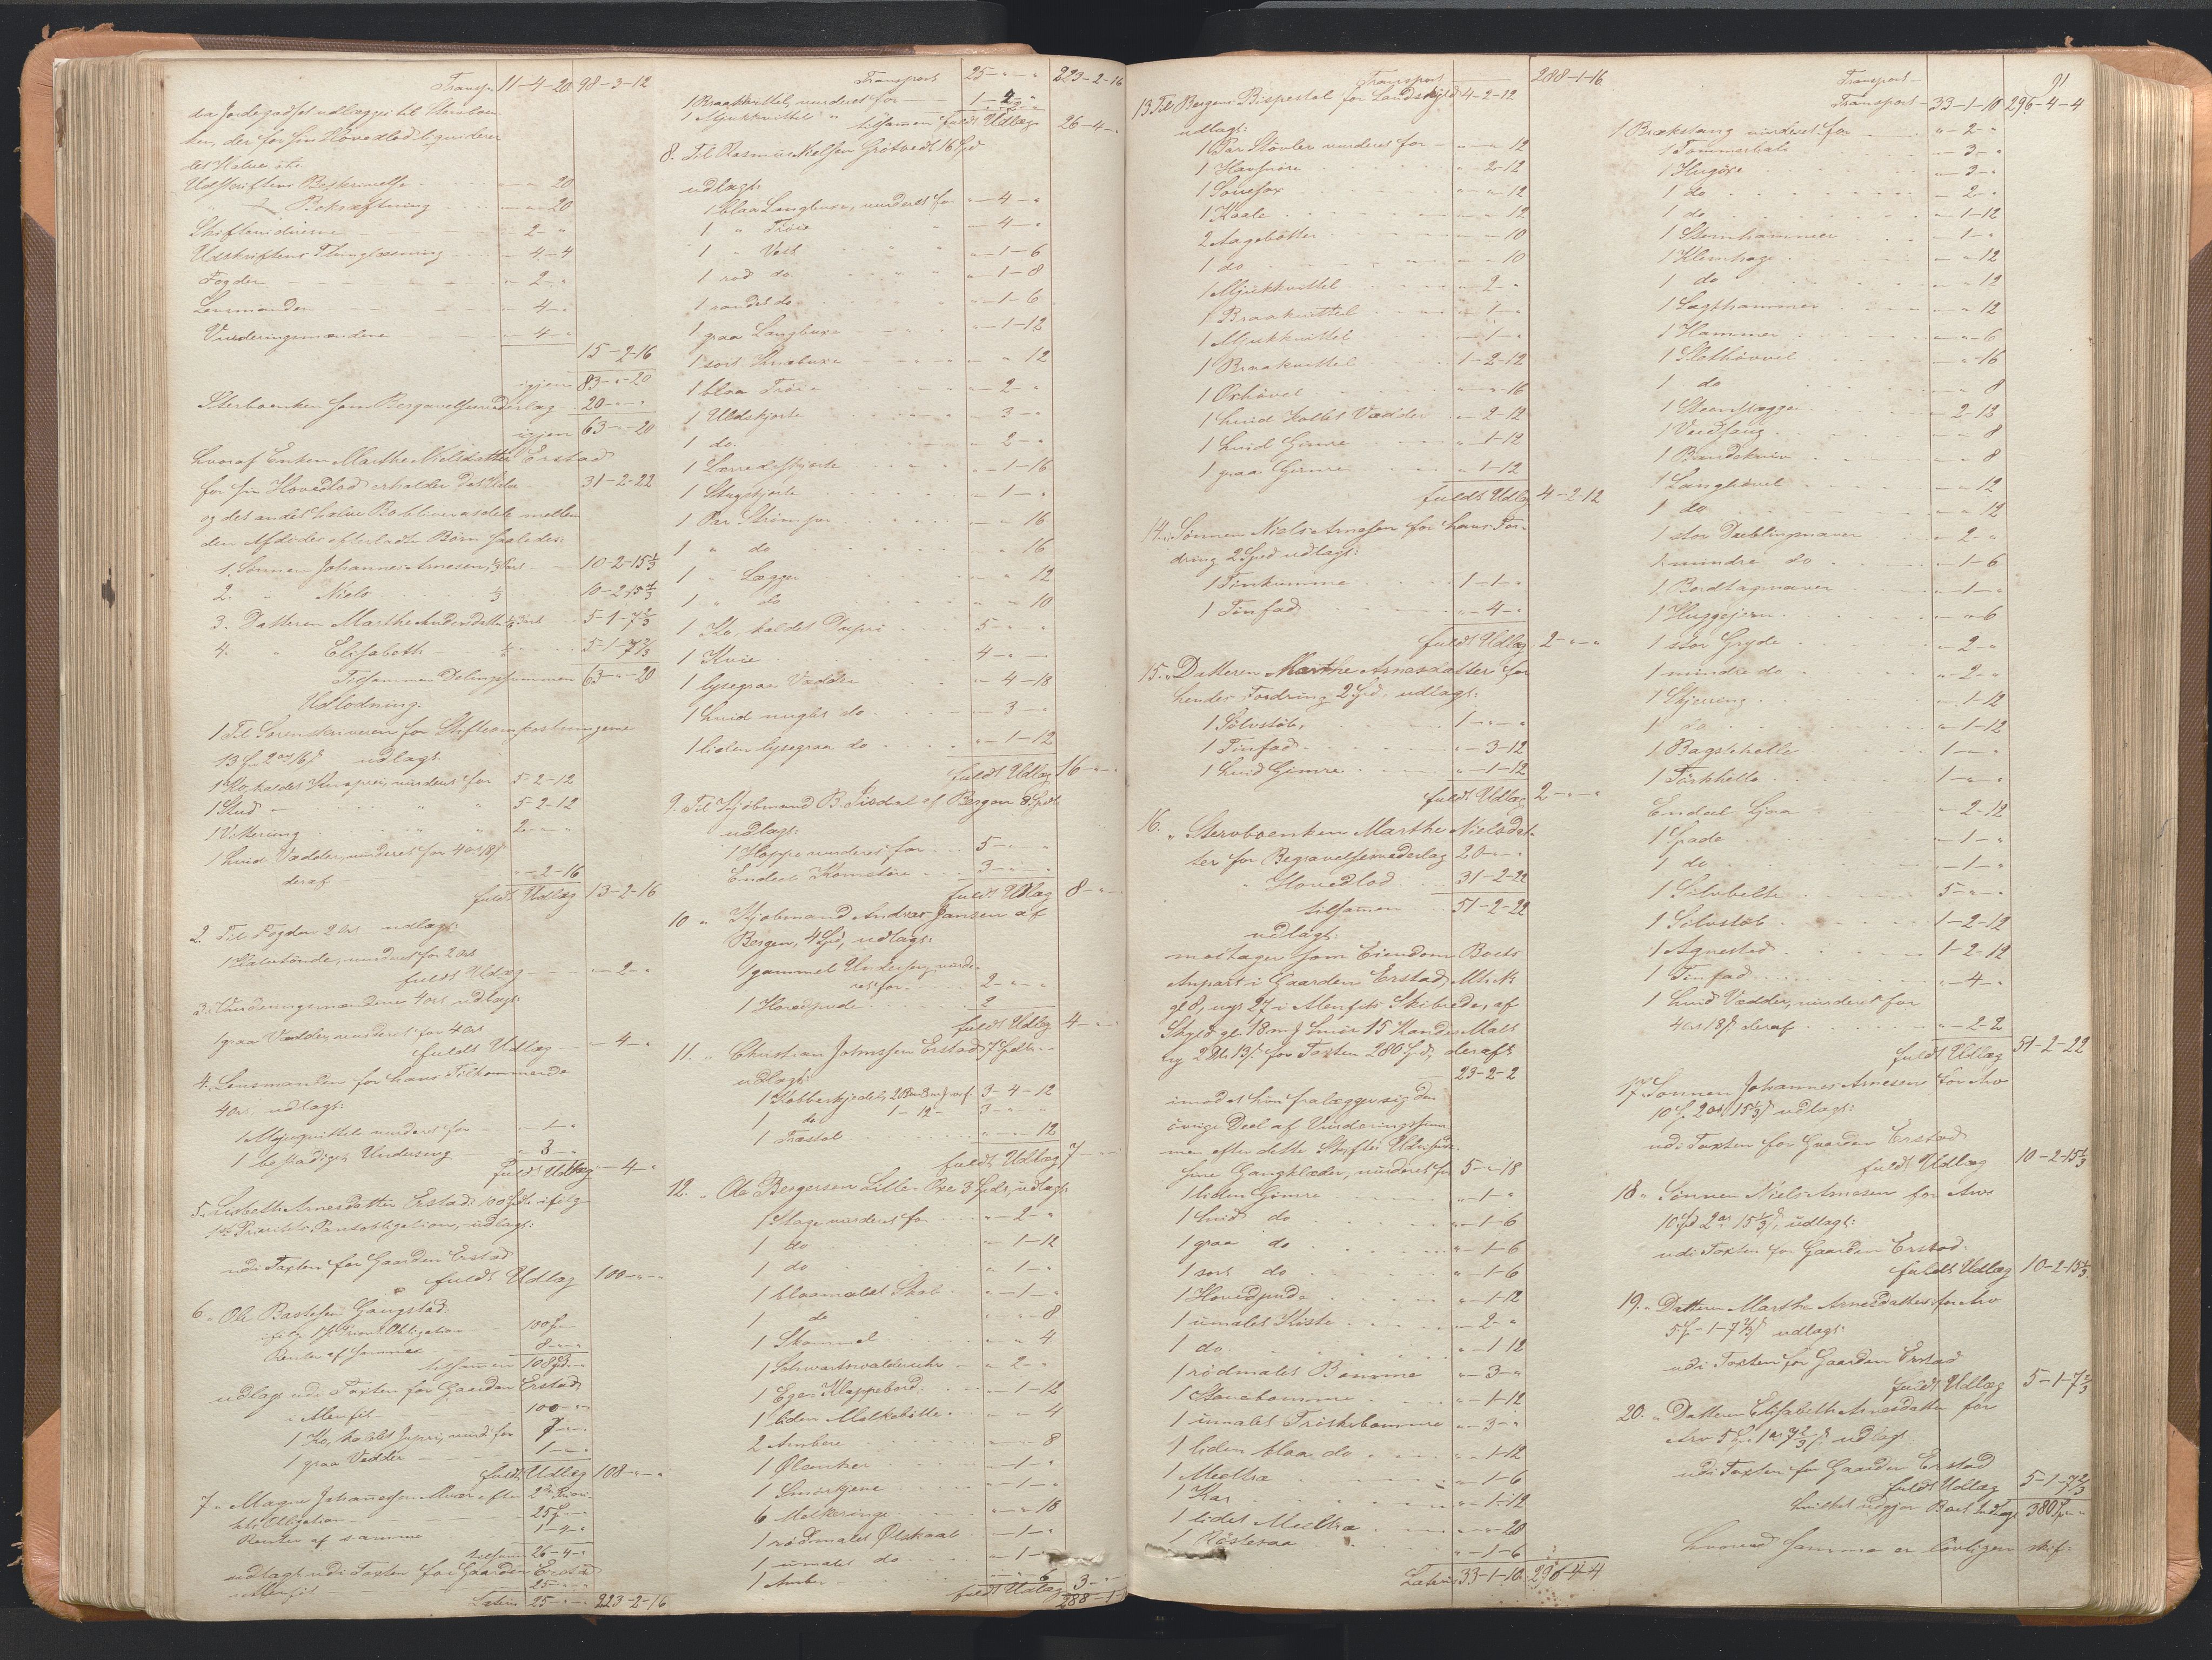 Transp. 11-4-20 98-3-12
da Jordegodset udlægges til Sterboen-
ken, der for sin Hovedlod
det Halve
Udskriftens Beskrivelse " - " 20
" Bekræftning " - " 20
Skiftevidnerne " 2 - "
Udskriftens Thinglæsning " - 4-4
Fogden " - 2 - "
Lensmanden " 4 - "
Vurderingsmændene " - 4 - "
15-2-16
igjen 83-"-20
Sterboenken som Begravelsesvederlag 20-"-"
igjen 63-"-20
hvoraf Enken Marthe Nielsdatter Erstad
for sin Hovedlod erholder det Halve 31-2-22
og det andet halve Bo bliver at dele mellem
den Afdødes efterladte Børn saaledes:
1. Sønnen Johannes Arnesen, 1/3 Part 10-2-15 1/3
2. " Niels 1/3 10-2-15 1/3
3. Datteren Marthe Arnesdatter 1/6 Part 5-1-7 2/3
4. " Elisabeth 1/6 5-1-7 2/3
Tilsammen Delingssummen 63-"-20
Udlodning:
1 Til Sorenskriveren for Skifteomkostningerne
13 Spd 2 ort 16 ß udlagt
1 Ko, kaldet vurderet for 5-2-12
1 Stud " " 5-2-12
1 " " 2-"-"
1 hvid Vædder, vurderet for 4 ort 18 ß
deraf "-2-16
fuldt Udlæg 13-2-16
2. Til Fogden 2 Ort udlagt:
1 vurderet for 2 Ort
fuldt Udlæg "-2-"
3. Vurderingsmændene 4 ort udlagt:
1 graa Vædder, vurderet for 4 Ort
fuldt Udlæg "-4-"
4. Lensmanden for hans Tilkommende
4 Ort, udlagt:
1 vurderet for "-1-"
1 bestædiget Underseng " 3 - "
fuldt Udlæg "-4-"
5. Lisbeth Arnesdatter Erstad 100 Spd. ifølge
1ste Prioritets Pantobligation, udlagt:
udi Taxten for Gaarden Erstad
fuldt Udlæg 100-"-"
6. Ole Gangstad:
ifølge Obligation 100 Sp.
Renter af samme 8-"-"
tilsammen 108 Spd.
udlagt udi Taxten for Gaarden Erstad
i Alenfit 100-"-"
1 Ko, kaldet vurd. for 7-"-"
1 graa Vædder 1-"-"
fuldt Udlæg 108-"-"
7. Magne Johannessen efter 2den Priori-
tets Obligation 25 Sp.
Renter af samme 1-4-"
tilsammen 26-4-"
udlagt udi Taxten for Gaarden Erstad
i Alenfit 25-"-"
Lateris 25-"-" 223-2-16
Transport 25-"-" 223-2-16
1 Braakvittel, vurderet for 1-2-"
1 Mjukkvittel "
tilsammen fuldt Udlæg 26-4-"
8. Til Rasmus Nielsen Grøtvedt 16 Spd
udlagt:
1 blaa Langbuxe, vurderet for "-4-"
1 " Trøie "-4-"
1 " Vest "-1-6
1 rød do "-1-8
1 randet do "-1-6
1 graa Langbuxe "-1-12
1 sort Knæbuxe "-"12
1 blaa Trøie "-2-"
1 Uldskjorte "-3-"
1 do. "-2-"
1 Lærredsskjorte "-1-16
1 Strieskjorte "-1-"
1 Par Strømper "-"16
1 " do "-"16
1 " Lægger "-"12
1 " do "-"10
1 Ko, kaldet 5-"-"
1 Kvie 4-"-"
1 lysegraa Vædder "-4-18
1 hvid do "-3-"
1 liden lysegraa do "-1-12
fuldt Udlæg 16-"-"
9. Til Kjøbmand B. af Bergen 8 Spd
udlagt:
1 Hoppe vurderet for 5-"-"
Endeel Kornstøre 3-"-"
fuldt Udlæg 8-"-"
10 " Kjøbmand Andreas Jansen af
Bergen, 4 Spd, udlagt:
1 gammel Underseng vurde-
ret for 2-"-"
1 Hovedpude 2
fuldt Udlæg 4-"-"
11. " Christian Johnssen Erstad 7 Spd.
udlagt:
1 Kobberkjedel, 3-4-12
1 do 1-12- 3-"-"
1 Træstol "-"-12
fuldt Udlæg 7-"-"
12. " Ole Børgersen Lille-Oxe 3 Spd., udlagt:
1 Stage vurderet for "-2-"
1 do "-1-12
1 do "-1-"
1 blaamalet Skab "-1-"
1 do "-"-8
1 Skammel "-"4
1 Schwartswalderuhr "-2-"
1 Eges Klappebord "-1-12
1 liden Melkebøtte "-"4
2 Ambere "-"8
1 Ølanker "-1-"
1 Smørkjerne "-1-"
6 Melkeringe "-"-18
1 rødmalet Ølskaal "-1-"
1 umalet do "-1-"
1 Amber "-"-6
fuldt Udlæg 3-"-"
288-1-16
Transport 288-1-16
13. Til Bergens Bispestol for Landskyld 4-2-12
udlagt:
1 Par Støvler vurderet for "-"12
1 Havsnøre "-2-12
1 "-"-12
1 Kaale "-"12
2 Aagebøtter "-"10
1 do "-"10
1 Mjukkvittel "-2-"
1 Braakvittel "-1-"
1 Mjukkvittel "-1-"
1 Braakvittel 1-2-12
1 Oxhøvel "-"-16
1 hvid kollet Vædder "-2-12
1 hvid Gimre "-1-12
1 graa Gimre " 1-12
fuldt Udlæg 4-2-12
14. Sønnen Niels Arnesen for hans For-
dring 2 Spd udlagt:
1 Tinkumme 1-1-"
1 Tinfad "-4-"
fuldt Udlæg 2-"-"
15. " Datteren Marthe Arnesdatter for
hendes Fordring 2 Spd, udlagt:
1 Sølvstøb, 1-"-"
1 Tinfad "-3-12
1 hvid Gimre "-1-12
fuldt Udlæg 2-"-"
16. " Stervboenken Marthe Nielsdat-
ter for Begravelsesvederlag 20-"-"
" Hovedlod 31-2-22
tilsammen 51-2-22
udlagt:
modtager som Eiendom Boets
Anpart i Gaarden Erstad, Matr.
gl 8, nye 27 i Alenfits Skibrede, af
Skyld gl. 18 m Smør 15 Kander Malt
ny 2 Dlr 13 ß for Taxten 280 Spd, deraf
23-2-2
imod at hun fralægger sig den
øvrige Deel af Vurderingssum-
men efter dette Skiftes Udvisende.
sine Gangklæder, vurderet for 5-"-18
1 liden Gimre "-1-"
1 hvid do "-1-6
1 graa do "-1-6
1 sort do "-1-6
1 Hovedpude "-1-12
1 umalet Kiste "-2-"
1 do. "-1 12
1 rødmalet Bomme "-3-"
1 "-1-12
1 umalet "-3-"
1 liden blaa do "-1-12
1 Meeltræ "-1-6
1 Kar "-1-12
1 lidet Meeltræ "-"-20
1 "-1-6
Lateris 33-1-10 296-4-4
91
Transport
Transport 33-1-10 296-4-4
1 Brækstang vurderet for "-2-"
1 "-3-"
1 Hugøxe "-3-"
1 do "-2-"
1 do "-1-12
1 Steenhammer "-1-"
1 Kleinhage "-"12
1 do "-"12
1 Lægthammer "-"12
1 Hammer "-"-6
1 Slethøvel "-"-16
1 do "-"8
1 Steenslægge "-2-12
1 "-"8
1 Baandekniv "-"8
1 Langhøvel "-"12
1 do "-"12
1 stor Dæblingsnaver "-2-"
1 mindre do "-1-6
1 Bordtagnaver "-1-"
1 Huggejern "-"6
1 stor Gryde "-2-"
1 mindre do "-2-"
1 Skjerring "-1-12
1 do "-1-12
1 Bagstehelle 1-"-"
1 Tørkhelle 1-"-"
Endeel Ljaa "-2-12
1 Spade "-1-"
1 do "-1-"
1 Sølvbelte 5-"-"
1 Sølvstøb 1-2-12
1 Agnestød 1-2-12
1 Tinfad "-4-"
1 hvid Vædder, vurderet for
4 ort 18 ß deraf "-2-2
fuldt Udlæg 51-2-22
17. Sønnen Johannes Arnesen for Arv
10 Sp. 2 ort 15 1/3 ß udlagt:
udi Taxten for Gaarden Erstad
fuldt Udlæg 10-2-15 1/3
18 " Sønnen Niels Arnesen for Arv
10 Spd 2 ort 15 1/3 ß, udlagt:
udi Taxten for Gaarden Erstad.
fuldt Udlæg 10-2-15 1/3
19. " Datteren Marthe Arnesdatter for Arv
5 Sp - 1 - 7 2/3 ß udlagt:
udi Taxten for Gaarden Erstad
fuldt Udlæg 5-1-7 2/3
20. " Datteren Elisabeth Arnesdatter for
Arv 5 Sp. 1 ort 7 2/3 ß. udlagt
udi Taxten for Gaarden Erstad
fuldt Udlæg 5-1-7 2/3
hvilket udgjør Boets Indtægt 380 Sp.
hvorved samme er lovligen skif-